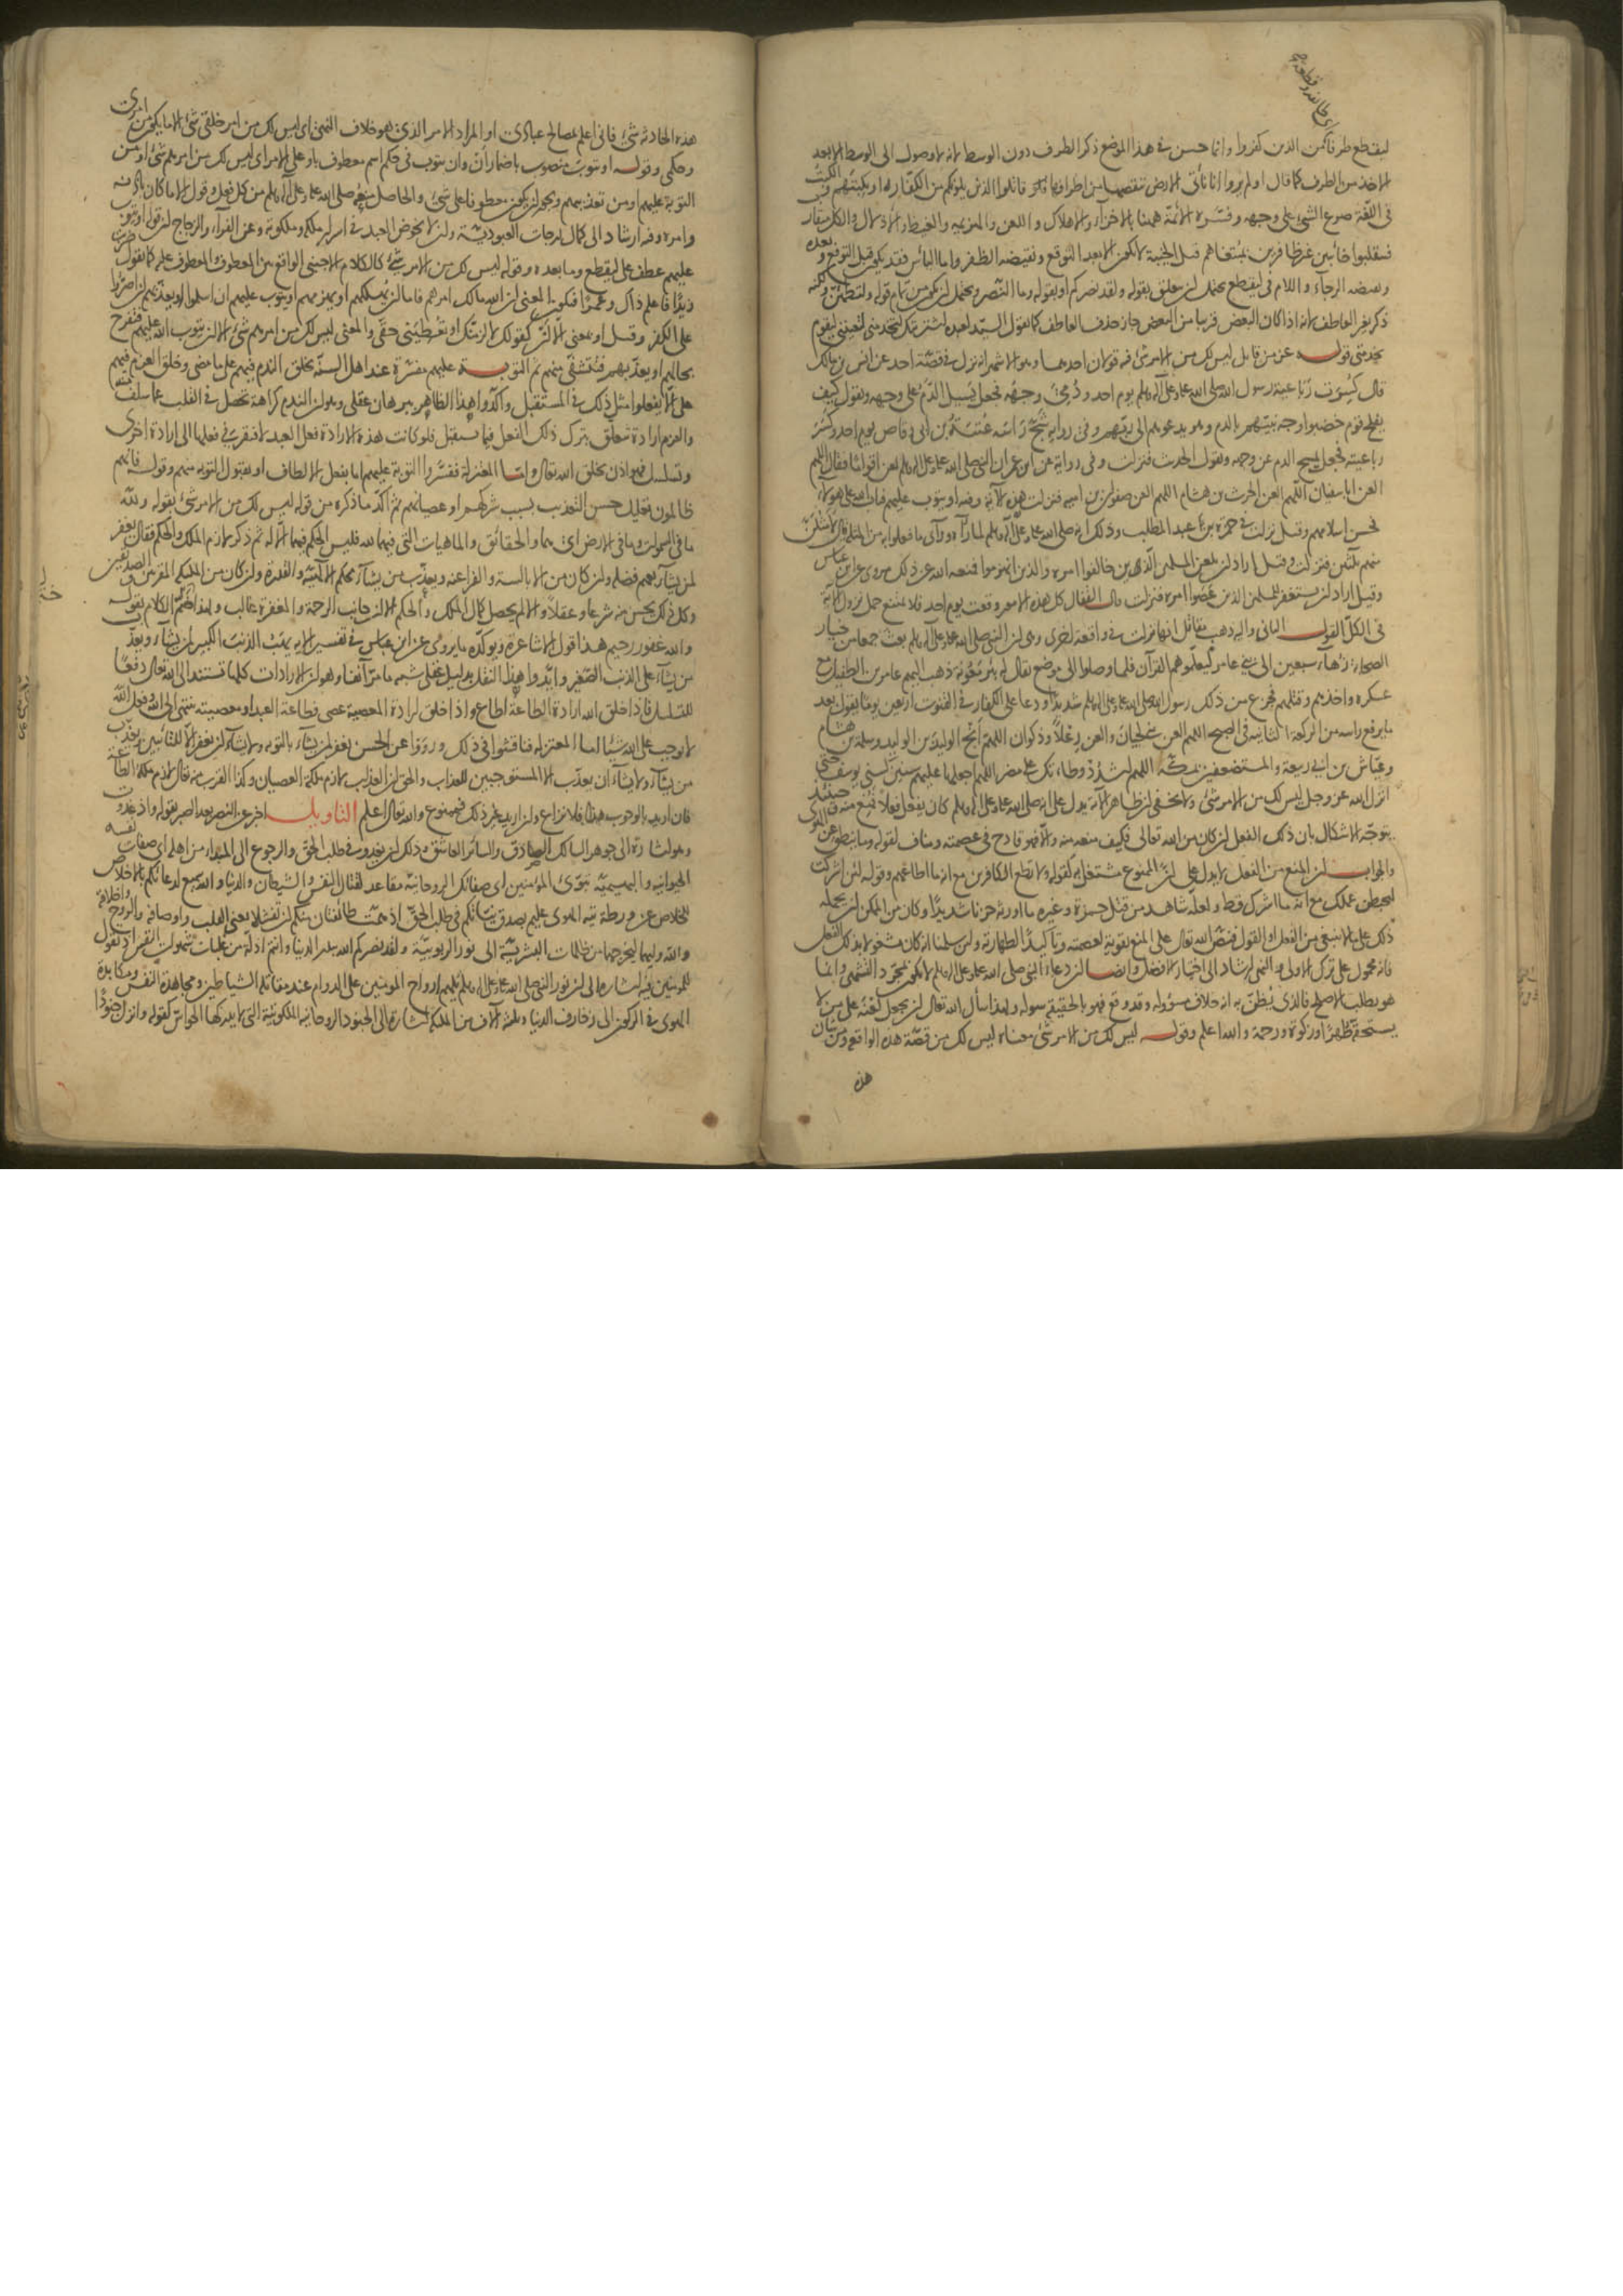 ليقطع طرفا من الذين كفروا وانما حسن فى هذا الموضع ذكر الطرف دون الوسط لانه لا وصول الى الوسط الا بعد
الاخذ من الطرف كما قال اولم يروا انا نأتى الارض ننقصها من اطرافها قاتلوا الذين يلونكم من الكفار او يكبتهم
فى اللغة صرع الشئ على وجهه وفسره الائمة ههنا بالاخزاء والاهلاك واللعن والهزيمة والغيظ والاذلال والكل متقارب
فينقلبوا خائبين غير ظافرين بمبتغاهم قيل الخيبة لا تكون الا بعد التوقع ونقيضه الظفر واما اليأس فقد يكون قبل التوقع وبعده
ونقيضه الرجاء واللام فى ليقطع يحتمل ان يتعلق بقوله ولقد نصركم او بقوله وما النصر ويحتمل ان يكون من تمام قوله ولتطمئن ولكنه
ذكر بغير العاطف لانه اذا كان البعض قريبا من البعض جاز حذف العاطف كما يقول السيد لعبده اشتريتك لتخدمنى لتعيننى ليقوم
بخدمتى قوله عز من قائل ليس لك من الامر شئ فيه قولان احدهما وهو الاشهر انه نزل فى قصة احد عن انس بن مالك
قال كسرت رباعية رسول الله صلى الله عليه وعلى آله وسلم يوم احد ودمى وجهه فجعل يسيل الدم على وجهه ويقول كيف
يفلح قوم خضبوا وجه نبيهم بالدم وهو يدعوهم الى ربهم وفى رواية شج رأسه عتبة بن ابى وقاص يوم احد وكسر
رباعيته فجعل يمسح الدم عن وجهه ويقول الحديث فنزلت وفى رواية عن ابن عمر ان النبى صلى الله عليه وعلى آله وسلم لعن اقواما فقال اللهم
العن ابا سفيان اللهم العن الحرث بن هشام اللهم العن صفوان بن امية فنزلت هذه الآية وفيه او يتوب عليهم فتاب الله على هؤلاء
فحسن اسلامهم وقيل نزلت فى حمزة بن عبد المطلب وذلك انه صلى الله عليه وعلى آله وسلم لما رآه ورأى ما فعلوا به من المثلة قال لامثلن
منهم بثلثين فنزلت وقيل اراد ان يلعن المسلمين الذين خالفوا امره والذين انهزموا فمنعه الله عن ذلك مروى عن ابن عباس
وقيل اراد ان يستغفر للمسلمين الذين عصوا امره فنزلت قال القفال كل هذه الامور وقعت يوم احد فلا يمتنع حمل نزول الآية
فى الكل القول الثانى واليه ذهب مقاتل انها نزلت فى واقعة اخرى وهى ان النبى صلى الله عليه وعلى آله وسلم بعث جمعا من خيار
الصحابة زهاء سبعين الى بنى عامر ليعلموهم القرآن فلما وصلوا الى موضع يقال له بئر معونة ذهب اليهم عامر بن الطفيل مع
عسكره واخذهم وقتلهم فجزع من ذلك رسول الله صلى الله عليه وعلى آله وسلم شديدا ودعا على الكفار فى القنوت اربعين يوما يقول بعد
ما يرفع رأسه من الركعة الثانية فى الصبح اللهم العن بنى لحيان والعن رعلا وذكوان اللهم انج الوليد بن الوليد وسلمة بن هشام
وعياش بن ابى ربيعة والمستضعفين بمكة اللهم اشدد وطأتك على مضر اللهم اجعلها عليهم سنين كسنى يوسف حتى
انزل الله عز وجل ليس لك من الامر شئ ولا يخفى ان ظاهر الآية يدل على انه صلى الله عليه وعلى آله وسلم كان يفعل فعلا فمنع منه وحينئذ
يتوجه الاشكال بان ذلك الفعل ان كان من الله تعالى فكيف منعه منه والا فهو قادح فى عصمته ومناف لقوله وما ينطق عن الهوى
والجواب ان المنع من الفعل لا يدل على ان الممنوع مشتغل به كقوله ولا تطع الكافرين مع انه ما اطاعهم وقوله لئن اشركت
ليحبطن عملك مع انه ما اشرك قط ولعله شاهد من قتل حمزة وغيره ما اورثه حزنا شديدا وكان من الممكن ان يحمله
ذلك على ما لا ينبغى من الفعل او القول فنص الله تعالى على المنع تقوية لعصمته وتأكيدا لطهارته ولئن سلمنا انه كان مشغولا بذلك الفعل
فانه محمول على ترك الاولى والنهى ارشاد الى اختيار الافضل وايضا ان دعاء النبى صلى الله عليه وعلى آله وسلم لا يكون بمجرد التشهى وانما
هو بطلب الاصلح فالذى يظن به انه خلاف مسؤوله وقد وقع فهو بالحقيقة سوله ولهذا سأل الله تعالى ان يجعل لعنه على من لا
يستحقه طهرا وزكوة ورحمة والله اعلم وقوله ليس لك من الامر شئ معناه ليس لك من قصة هذه الواقعة ومن شأن
هذه
هذه الحادثة شئ فانى اعلم بمصالح عبادى او المراد الامر الذى هو خلاف النهى اى ليس لك من امر خلقى شئ الا ما يكون من امرى
وحكمى وقوله او يتوب منصوب باضمار ان وان يتوب فى حكم اسم معطوف باو على الامر اى ليس لك من امرهم شئ او من
التوبة عليهم او من تعذيبهم ويجوز ان يكون معطوفا على شئ والحاصل منعه صلى الله عليه وعلى آله وسلم من كل فعل وقول الا ما كان باذنه
وامره وفيه ارشاد الى كمال درجات العبودية وان لا يخوض العبد فى اسرار ملكه وملكوته وعن الفراء والزجاج ان قوله او يتوب
عليهم عطف على ليقطع وما بعده وقوله ليس لك من الامر شئ كالكلام الاجنبى الواقع بين المعطوف والمعطوف عليه كما تقول ضربت
زيدا فاعلم ذاك وعمرا فيكون المعنى ان الله مالك امرهم فاما ان يهلكهم او يهزمهم او يتوب عليهم ان اسلموا او يعذبهم ان اصروا
على الكفر وقيل او بمعنى الا ان كقولك لالزمنك او تعطينى حقى والمعنى ليس لك من امرهم شئ الا ان يتوب الله عليهم فتفرح
بحالهم او يعذبهم فتتشفى منهم ثم التوبة عليهم مفسرة عند اهل السنة بخلق الندم فيهم على ما مضى وخلق العزم فيهم
على الا يفعلوا مثل ذلك فى المستقبل واكدوا هذا الظاهر ببرهان عقلى وهو ان الندم كراهة تحصل فى القلب عما سلف
والعزم ارادة تتعلق بترك ذلك الفعل فيما يستقبل فلو كانت هذه الارادة فعل العبد لافتقر فى فعلها الى ارادة اخرى
وتسلسل فهو اذن بخلق الله تعالى واما المعتزلة ففسروا التوبة عليهم اما بفعل الالطاف او بقبول التوبة منهم وقوله فانهم
ظالمون تعليل حسن التعذيب بسبب شركهم او عصيانهم ثم اكد ما ذكره من قوله ليس لك من الامر شئ بقوله ولله
ما فى السموات وما فى الارض اى هما والحقائق والماهيات التى فيهما لله فليس الحكم فيهما الا له ثم ذكر لازم الملك والحكم فقال يغفر
لمن يشاء بعميم فضله وان كان من الابالسة والفراعنة ويعذب من يشاء بحكم الالهية والقدرة وان كان من الملئكة المقربين والصديقين
وكل ذلك يحسن منه شرعا وعقلا والا لم يحصل كمال الملك والحكم الا ان جانب الرحمة والمغفرة غالب ولهذا ختم الكلام بقوله
والله غفور رحيم هذا قول الاشاعرة ويؤكده ما يروى عن ابن عباس فى تفسير الآية يهب الذنب الكبير لمن يشاء ويعذب
من يشاء على الذنب الصغير وايدوا هذا النقل بدليل عقلى شبيه ما مر آنفا وهو ان الارادات كلها تستند الى الله تعالى دفعا
للتسلسل فاذا خلق الله ارادة الطاعة اطاع واذا خلق ارادة المعصية عصى فطاعة العبد ومعصيته تنتهى الى الله وفعل الله
لا يوجب على الله شيئا اما المعتزلة فناقشوا فى ذلك ورووا عن الحسن يغفر لمن يشاء بالتوبة ولا يشاء ان يغفر الا للتائبين ويعذب
من يشاء ولا يشاء ان يعذب الا المستوجبين للعذاب والحق ان العذاب لازم ملكة العصيان وكذا القرب منه تعالى لازم ملكة الطاعة
فان اريد بالوجوب هذا فلا نزاع وان اريد غير ذلك فممنوع والله تعالى اعلم التاويل اخبر عن النصر بعد الصبر بقوله واذ غدوت
وهو اشارة الى جوهر السالك الصادق والسائر العاشق وذلك ان يغدو فى طلب الحق والرجوع الى المبداء من اهله اى صفات نفسه
الحيوانية والبهيمية تبوئ المؤمنين اى صفاتك الروحانية مقاعد لقتال النفس والشيطان والدنيا والله سميع لدعائكم بالاخلاص
للخلاص عن ورطة تيه الهوى عليم بصدق نياتكم فى طلب الحق اذ همت طائفتان منكم ان تفشلا يعنى القلب واوصافه والروح واخلاقه
والله وليهما ليخرجهما من ظلمات البشرية الى نور الربوبية ولقد نصركم الله ببدر الدنيا وانتم اذلة من غلبات شهوات النفس اذ تقول
للمؤمنين فيه اشارة الى ان نور النبى صلى الله عليه وعلى آله وسلم يلهم ارواح المومنين على الدوام عند مقاتلة الشياطين ومجاهدة النفس ومكابدة
الهوى فى الركون الى زخارف الدنيا وثلثة آلاف من الملئكة اشارة الى الجنود الروحانية الملكوتية التى لا يدركها الحواس كقوله وانزل جنودا